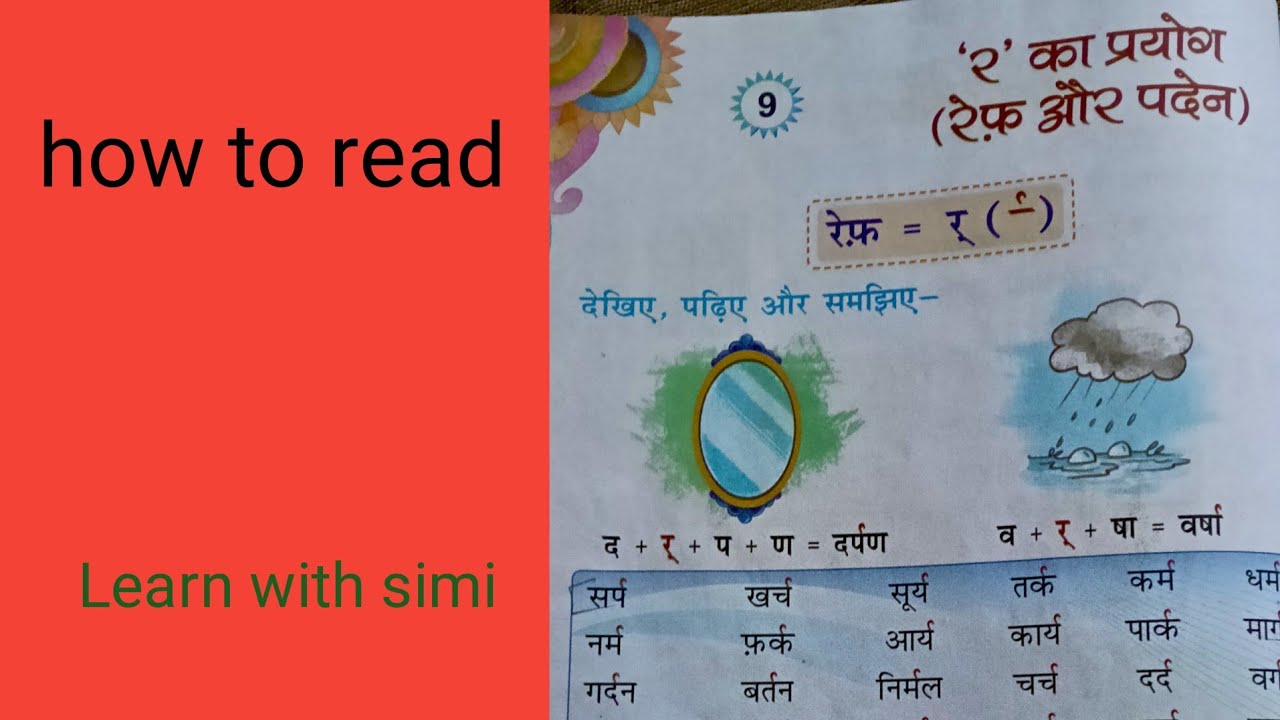 how to read
Learn with simi
9
‘र’ का प्रयोग
(रेफ़ और पदेन)
रेफ़ = र् (र्)
देखिए, पढ़िए और समझिए–
द + र् + प + ण = दर्पण
व + र् + षा = वर्षा
सर्प खर्च सूर्य तर्क कर्म धर्म
नर्म फ़र्क आर्य कार्य पार्क मार्ग
गर्दन बर्तन निर्मल चर्च दर्द वर्ग